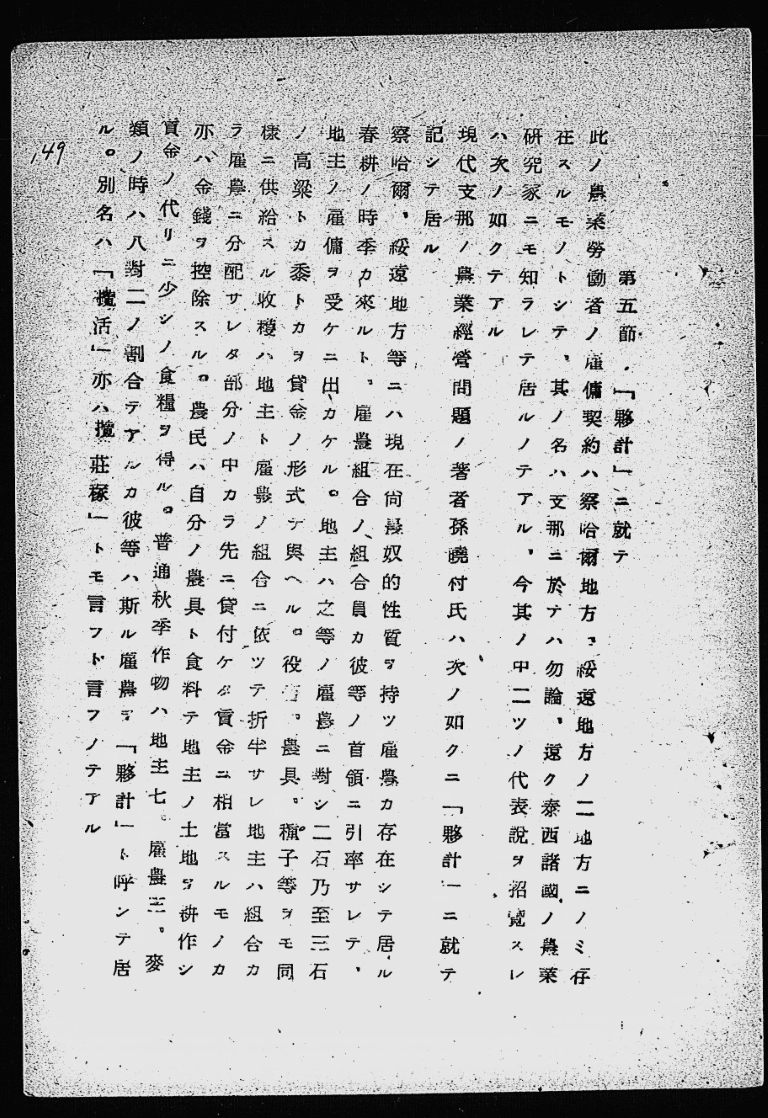 第五節 「夥計」ニ就テ
此ノ農業勞働者ノ雇傭契約ハ察哈爾地方、綏遠地方ノ二地方ニノミ存
在スルモノトシテ、其ノ名ハ支那ニ於テハ勿論、遠ク泰西諸國ノ農業
研究家ニモ知ラレテ居ルノテアル、今其ノ中二ツノ代表說ヲ招覽スレ
ハ次ノ如クテアル
現代支那ノ農業經營問題ノ著者孫曉村氏ハ次ノ如クニ「夥計」ニ就テ
記シテ居ル
察哈爾、綏遠地方等ニハ現在尚農奴的性質ヲ持ツ雇農カ存在シテ居ル
春耕ノ時季カ來ルト、雇農組合ノ組合員カ彼等ノ首領ニ引率サレテ、
地主ノ雇傭ヲ受ケニ出カケル。地主ハ之等ノ雇農ニ對シ二石乃至三石
ノ高粱トカ黍トカヲ貸金ノ形式テ與ヘル。役 。農具。種子等ヲモ同
樣ニ供給スル收穫ハ地主ト雇農ノ組合ニ依ツテ折半サレ地主ハ組合カ
ラ雇農ニ分配サレタ部分ノ中カラ先ニ貸付ケタ賃金ニ相當スルモノカ
亦ハ金錢ヲ控除スル。農民ハ自分ノ農具ト食料テ地主ノ土地ヲ耕作シ
賃金ノ代リニ少シノ食糧ヲ得ル。普通秋季作物ハ地主七。雇農三。麥
類ノ時ハ八對二ノ割合テアルカ彼等ハ斯ル雇農ヲ「夥計」ト呼ンテ居
ル。別名ハ「攬活」亦ハ攬莊稼」トモ言フト言フノテアル
149